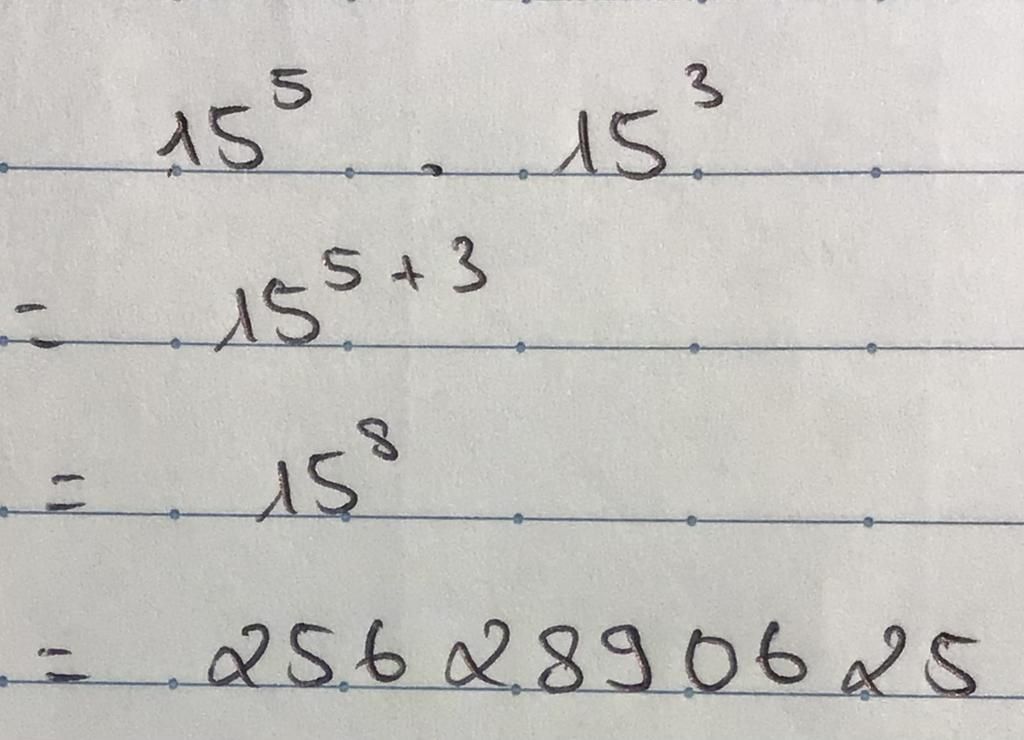 15⁵ . 15³
= 15⁵⁺³
= 15⁸
= 2562890625